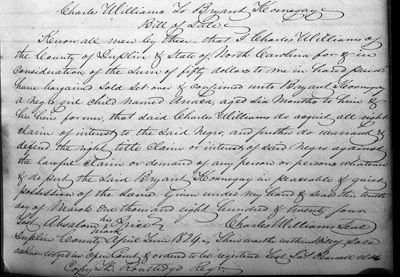 Charles Williams To Bryant Kornegay
Bill of Sale
Know all men by these that I Charles Williams of
the County of Duplin & State of North Carolina for & in
consideration of the Sum of fifty dollars to me in hand paid
have bargain Sold Set over & confirmed unto Bryant Kornegay
a Negro girl child named aged six Months to him &
his heirs forever, that said Charles Williams do acquit all right
claim of interest to the said Negro, and further do warrant &
defend the right title Claim or interest of said Negro against
the lawful claim or demand of any person or persons whatever
& do put the Said Bryant Kornegay in peaceable & quiet
possession of the Same Given under my hand & Seal this tenth
day of March One thousand eight hundred & twenty four
Absalom his Charles Williams Seal
mark
Duplin County April Term 1824 Then was the within Bill of Sale
acknowledged in Open Court & ordered to be registered Test
Copy